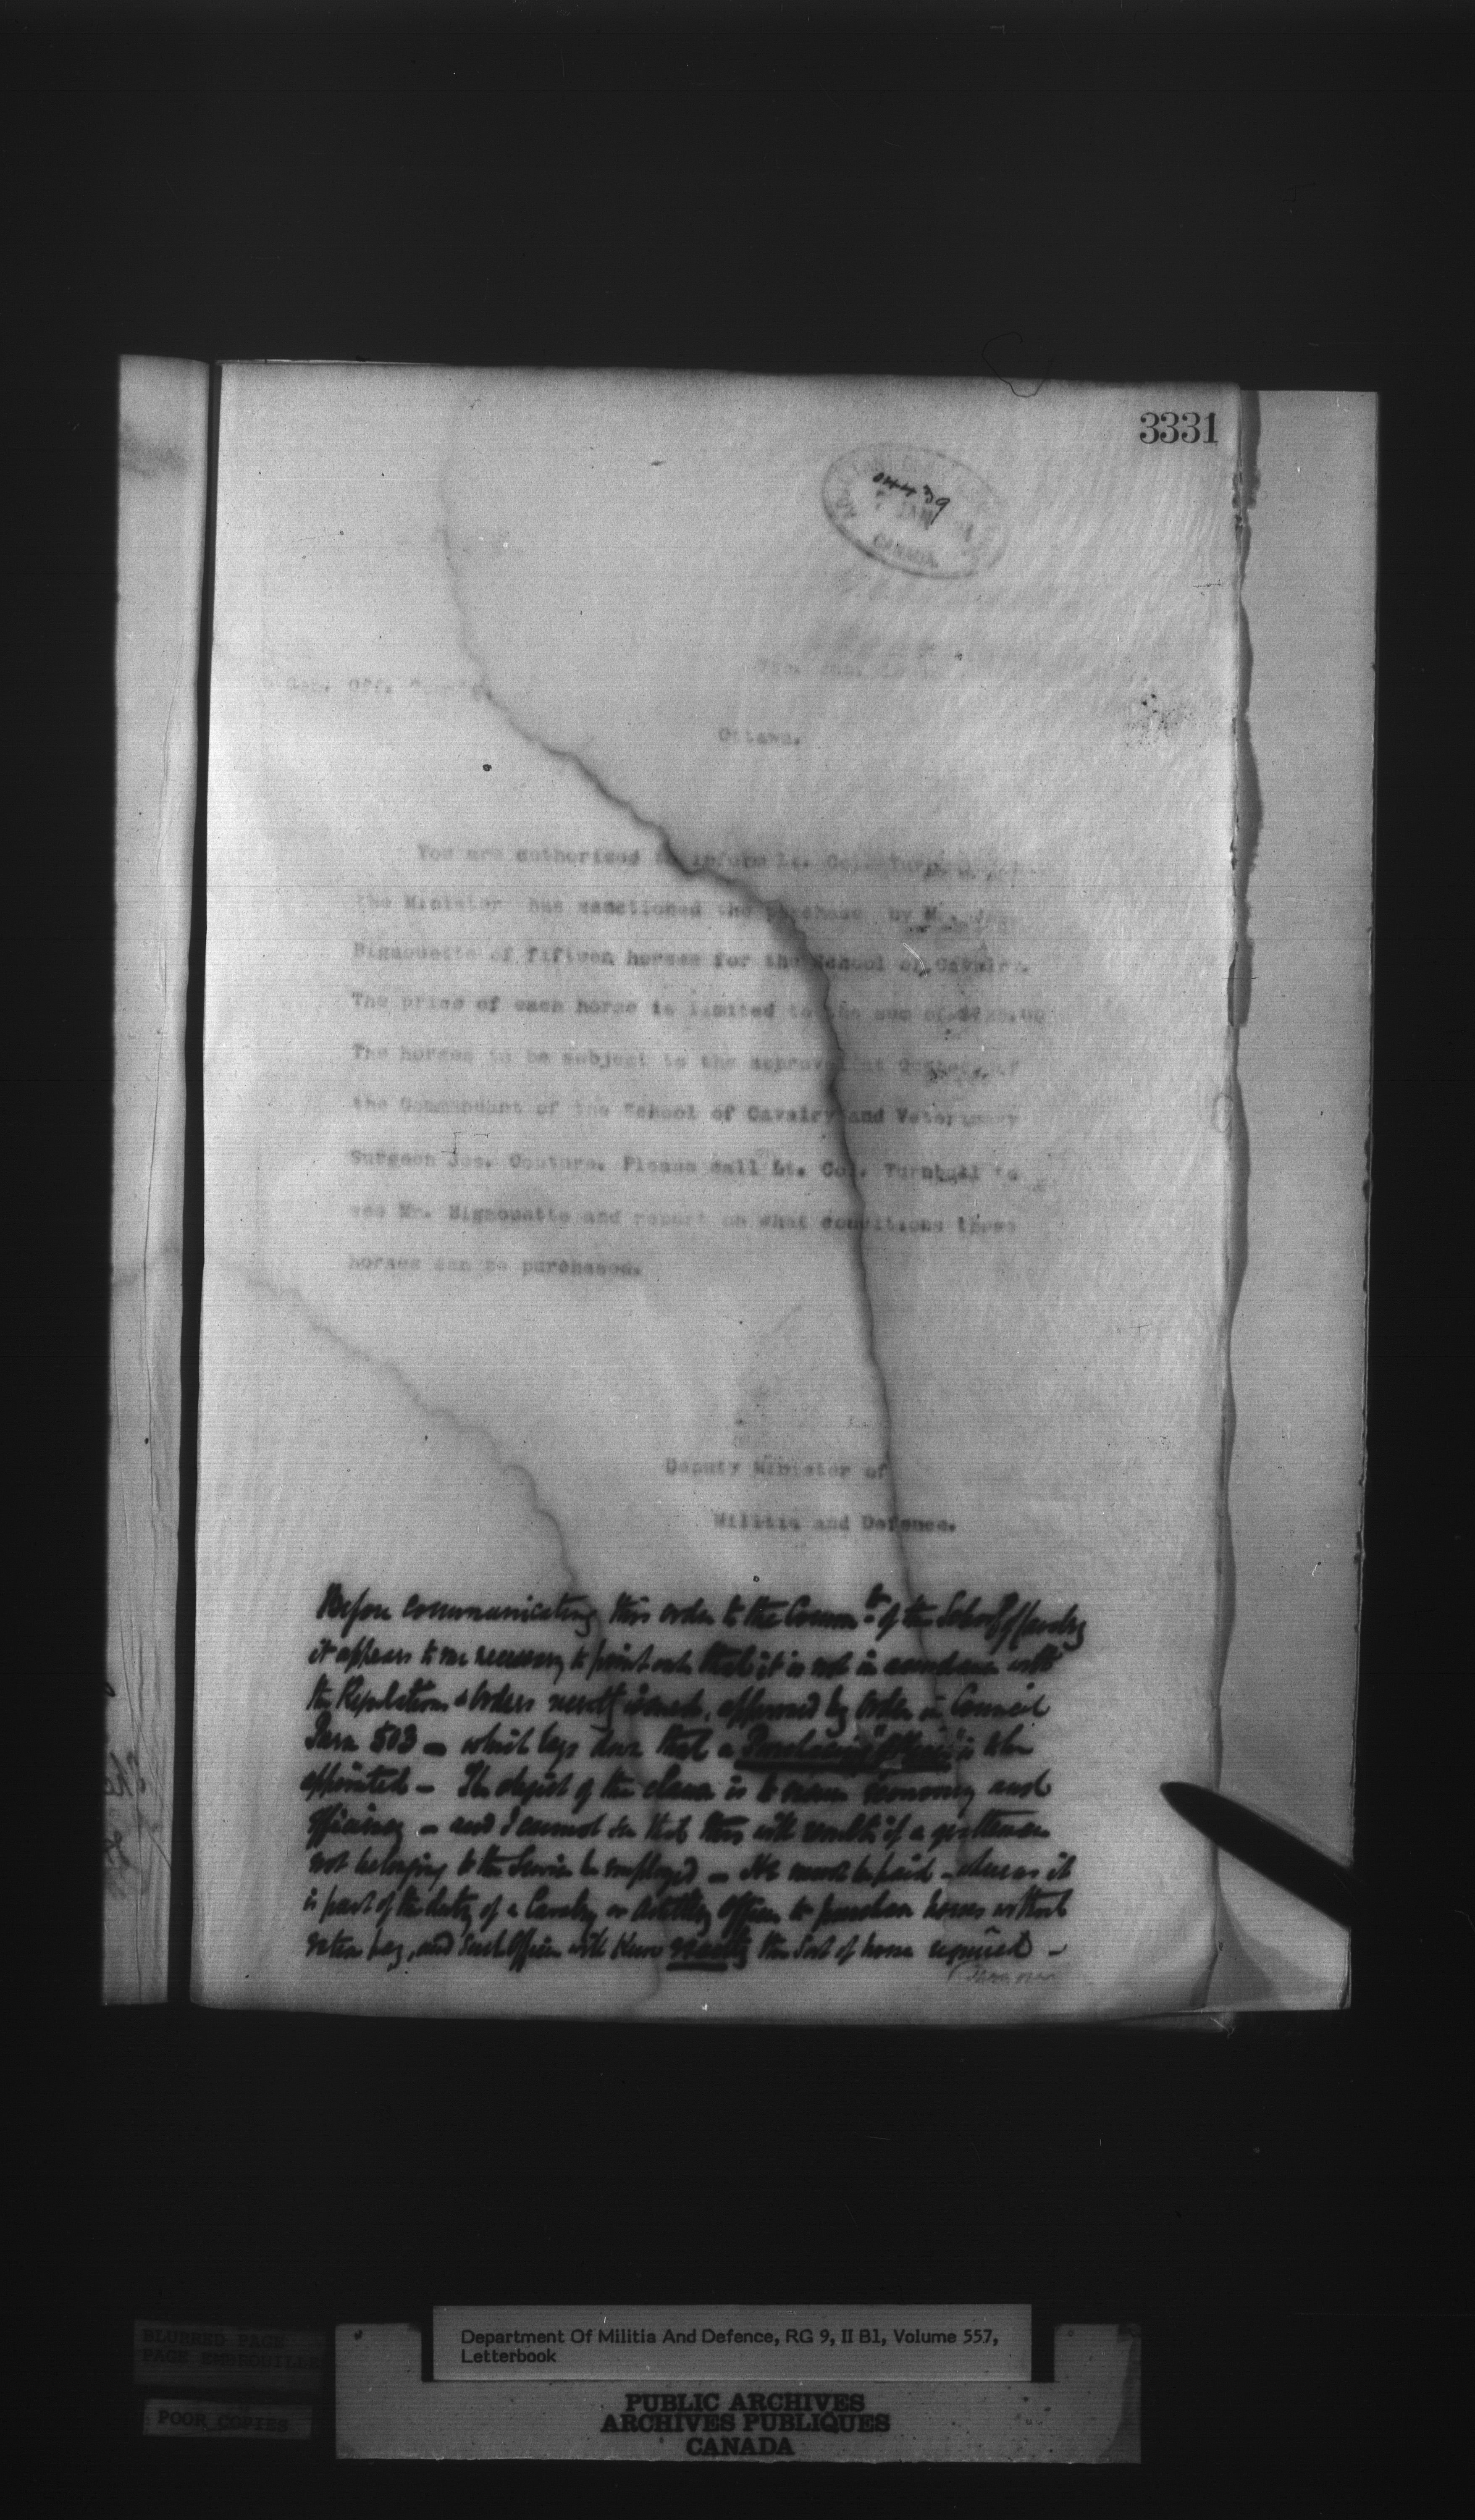 3331
04439
CANADA
Gen. Off. Com'd'g.
Ottawa.
You are authorised to inform Lt. Col.
the Minister has sanctioned the purchase by
Bignouette of fifteen horses for the School of Cavalry.
The price of each horse is limited to the sum of
The horses to be subject to the approval at Quebec, of
the Commandant of the School of Cavalry and Veterinary
Surgeon Jos. Couture. Please call Lt. Col. Turnbull to
see Mr. Bignouette and report on what conditions these
horses can be purchased.
Deputy Minister of
Militia and Defence.
Before communicating this order to the Comm.dt of the School of Cavalry
it appears to me necessary to point out that it is not in accordance with
the Regulations & Orders recently issued, approved by Order in Council
Para 503 - which lays down that a Purchasing "Officer" is to be
appointed - The object of the clause is to secure economy and
efficiency - and I cannot see that this will result if a gentleman
not belonging to the Service be employed - He must be paid - whereas it
is part of the duty of a Cavalry or Artillery Officer to purchase horses without
extra pay, and such Officer will know exactly the sort of horse required -
BLURRED PAGE
PAGE EMBROUILLE
POOR COPIES
Department Of Militia And Defence, RG 9, II B1, Volume 557,
Letterbook
PUBLIC ARCHIVES
ARCHIVES PUBLIQUES
CANADA